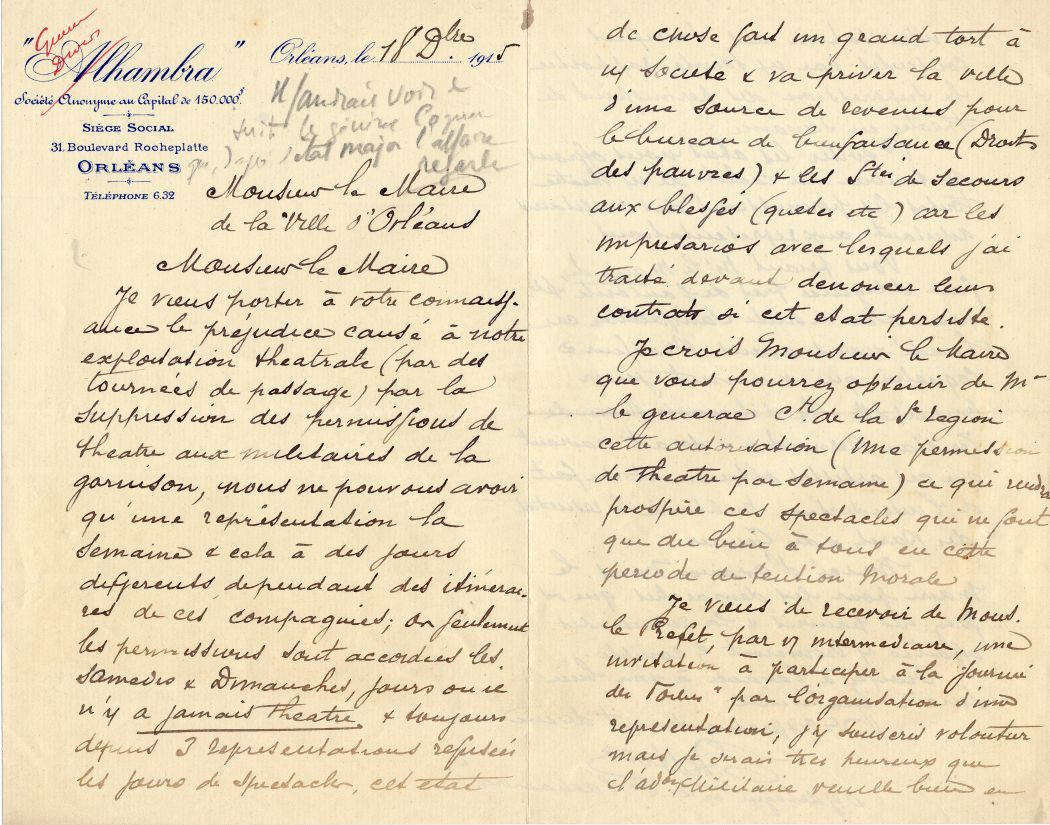 Guerre
Divers
"Alhambra"
Société Anonyme au Capital de 150.000f
SIÈGE SOCIAL
31, Boulevard Rocheplatte
ORLÉANS
TÉLÉPHONE 6.32
Orléans, le 18 Dbre 1915
Il faudrait voir
le général
que, d'après l'état major l'affaire
regarde
Monsieur le Maire
de la Ville d'Orléans
Monsieur le Maire
Je viens porter à votre connaiss-
ance le préjudice causé à notre
exploitation theatrale (par des
tournées de passage) par la
suppression des permissions de
theatre aux militaires de la
garnison, nous ne pouvons avoir
qu'une représentation la
semaine & cela à des jours
differents, dependant des itinérai-
res de ces compagnies; or seulement
les permissions sont accordées les
samedis & Dimanches, jours ou il
n'y a jamais theatre, & toujours
depuis 3 représentations refusées
les jours de spectacle, cet état
de chose fait un grand tort à
n/ Société & va priver la ville
d'une source de revenus pour
le bureau de bienfaisance (Droits
des pauvres) & les Stés de secours
aux blessés (quetes etc) car les
impresarios avec lesquels j'ai
traité devant denoncer leurs
contrats si cet etat persiste.
Je crois Monsieur le Maire
que vous pourrez obtenir de Mr
le general Ct de la 5e region
cette autorisation (une permission
de theatre par semaine) ce qui rendra
prospère ces spectacles qui ne font
que du bien à tous en cette
periode de tention morale
Je viens de recevoir de Mons.
le Prefet, par v/ intermediaire, une
invitation à participer à la journée
des Poilus" par l'organisation d'une
representation, j'y souscris volontier
mais je serais tres heureux que
l'adon Militaire veuille bien en